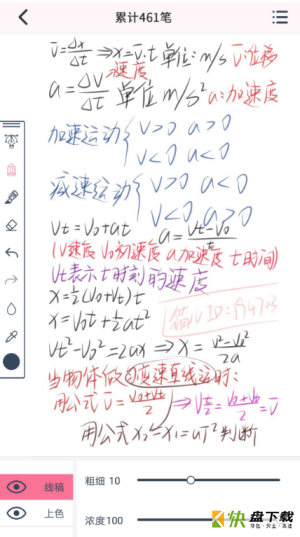 累计461笔
v̅=Δx/Δt ⇒x=v̅·t 单位:m/s v̅:位移
速度
a=Δv/Δt 单位m/s² a:加速度
加速运动{v>0 a>0
v<0 a<0
减速运动{v>0 a<0
v<0 a>0
Vt=V₀+at a=Vt-V₀/t
(V速度 V₀初速度 a加速度 t时间)
Vt表示t时刻的速度
x=½(V₀+Vt)t
x=V₀t+½at²
Vt²-V₀²=2ax ⇒x=v²-v₀²/2a
当物体做匀变速直线运时:
用公式v̅=V₀+Vt/2 ⇒Vt/2=V₀+Vt/2=v̅
用公式x₂-x₁=aT²判断
线稿
粗细 10
上色
浓度100
快盘下载